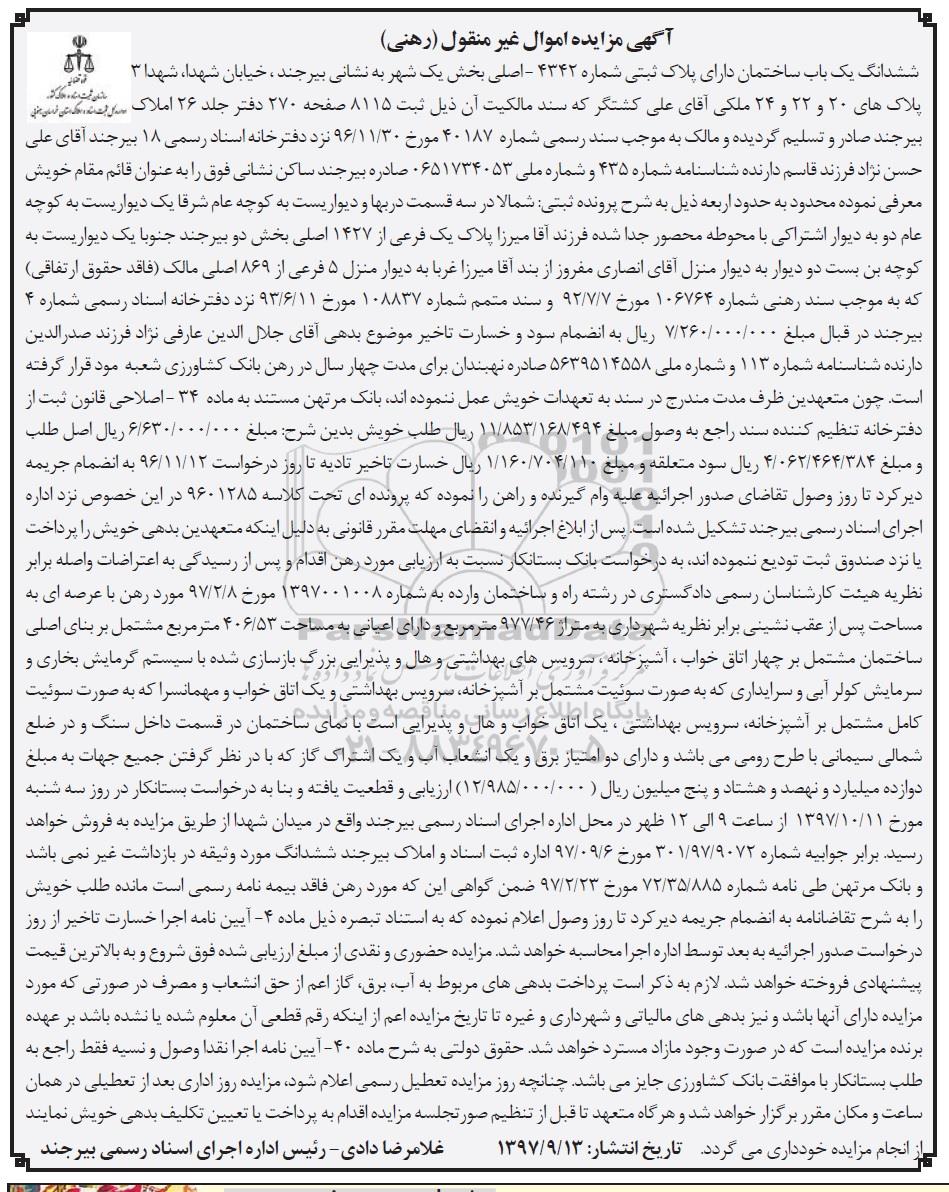 آگهی مزایده اموال غیر منقول (رهنی)
قوه قضائیه
سازمان ثبت اسناد و املاک کشور
اداره کل ثبت اسناد و املاک استان خراسان جنوبی
ششدانگ یک باب ساختمان دارای پلاک ثبتی شماره ۴۳۴۲ -اصلی بخش یک شهر به نشانی بیرجند ، خیابان شهدا، شهدا ۳
پلاک های ۲۰ و ۲۲ و ۲۴ ملکی آقای علی کشتگر که سند مالکیت آن ذیل ثبت ۸۱۱۵ صفحه ۲۷۰ دفتر جلد ۲۶ املاک
بیرجند صادر و تسلیم گردیده و مالک به موجب سند رسمی شماره ۴۰۱۸۷ مورخ ۹۶/۱۱/۳۰ نزد دفترخانه اسناد رسمی ۱۸ بیرجند آقای علی
حسن نژاد فرزند قاسم دارنده شناسنامه شماره ۴۳۵ و شماره ملی ۰۶۵۱۷۳۴۰۵۳ صادره بیرجند ساکن نشانی فوق را به عنوان قائم مقام خویش
معرفی نموده محدود به حدود اربعه ذیل به شرح پرونده ثبتی: شمالا در سه قسمت دربها و دیواریست به کوچه عام شرقا یک دیواریست به کوچه
عام دو به دیوار اشتراکی با محوطه محصور جدا شده فرزند آقا میرزا پلاک یک فرعی از ۱۴۲۷ اصلی بخش دو بیرجند جنوبا یک دیواریست به
کوچه بن بست دو دیوار به دیوار منزل آقای انصاری مفروز از بند آقا میرزا غربا به دیوار منزل ۵ فرعی از ۸۶۹ اصلی مالک (فاقد حقوق ارتفاقی)
که به موجب سند رهنی شماره ۱۰۶۷۶۴ مورخ ۹۲/۷/۷ و سند متمم شماره ۱۰۸۸۳۷ مورخ ۹۳/۶/۱۱ نزد دفترخانه اسناد رسمی شماره ۴
بیرجند در قبال مبلغ ۷/۲۶۰/۰۰۰/۰۰۰ ریال به انضمام سود و خسارت تاخیر موضوع بدهی آقای جلال الدین عارفی نژاد فرزند صدرالدین
دارنده شناسنامه شماره ۱۱۳ و شماره ملی ۵۶۳۹۵۱۴۵۵۸ صادره نهبندان برای مدت چهار سال در رهن بانک کشاورزی شعبه مود قرار گرفته
است. چون متعهدین ظرف مدت مندرج در سند به تعهدات خویش عمل ننموده اند، بانک مرتهن مستند به ماده ۳۴ -اصلاحی قانون ثبت از
دفترخانه تنظیم کننده سند راجع به وصول مبلغ ۱۱/۸۵۳/۱۶۸/۴۹۴ ریال طلب خویش بدین شرح: مبلغ ۶/۶۳۰/۰۰۰/۰۰۰ ریال اصل طلب
و مبلغ ۴/۰۶۲/۴۶۴/۳۸۴ ریال سود متعلقه و مبلغ ۱/۱۶۰/۷۰۴/۱۱۰ ریال خسارت تاخیر تادیه تا روز درخواست ۹۶/۱۱/۱۲ به انضمام جریمه
دیرکرد تا روز وصول تقاضای صدور اجرائیه علیه وام گیرنده و راهن را نموده که پرونده ای تحت کلاسه ۹۶۰۱۲۸۵ در این خصوص نزد اداره
اجرای اسناد رسمی بیرجند تشکیل شده است. پس از ابلاغ اجرائیه و انقضای مهلت مقرر قانونی به دلیل اینکه متعهدین بدهی خویش را پرداخت
یا نزد صندوق ثبت تودیع ننموده اند، به درخواست بانک بستانکار نسبت به ارزیابی مورد رهن اقدام و پس از رسیدگی به اعتراضات واصله برابر
نظریه هیئت کارشناسان رسمی دادگستری در رشته راه و ساختمان وارده به شماره ۱۳۹۷۰۰۱۰۰۸ مورخ ۹۷/۲/۸ مورد رهن با عرصه ای به
مساحت پس از عقب نشینی برابر نظریه شهرداری به متراژ ۹۷۷/۴۶ مترمربع و دارای اعیانی به مساحت ۴۰۶/۵۳ مترمربع مشتمل بر بنای اصلی
ساختمان مشتمل بر چهار اتاق خواب ، آشپزخانه ، سرویس های بهداشتی و هال و پذیرایی بزرگ بازسازی شده با سیستم گرمایش بخاری و
سرمایش کولر آبی و سرایداری که به صورت سوئیت مشتمل بر آشپزخانه، سرویس بهداشتی و یک اتاق خواب و مهمانسرا که به صورت سوئیت
کامل مشتمل بر آشپزخانه، سرویس بهداشتی ، یک اتاق خواب و هال و پذیرایی است با نمای ساختمان در قسمت داخل سنگ و در ضلع
شمالی سیمانی با طرح رومی می باشد و دارای دو امتیاز برق و یک انشعاب آب و یک اشتراک گاز که با در نظر گرفتن جمیع جهات به مبلغ
دوازده میلیارد و نهصد و هشتاد و پنج میلیون ریال (۱۲/۹۸۵/۰۰۰/۰۰۰) ارزیابی و قطعیت یافته و بنا به درخواست بستانکار در روز سه شنبه
مورخ ۱۳۹۷/۱۰/۱۱ از ساعت ۹ الی ۱۲ ظهر در محل اداره اجرای اسناد رسمی بیرجند واقع در میدان شهدا از طریق مزایده به فروش خواهد
رسید. برابر جوابیه شماره ۳۰۱/۹۷/۹۰۷۲ مورخ ۹۷/۰۹/۶ اداره ثبت اسناد و املاک بیرجند ششدانگ مورد وثیقه در بازداشت غیر نمی باشد
و بانک مرتهن طی نامه شماره ۷۲/۳۵/۸۸۵ مورخ ۹۷/۲/۲۳ ضمن گواهی این که مورد رهن فاقد بیمه نامه رسمی است مانده طلب خویش
را به شرح تقاضانامه به انضمام جریمه دیرکرد تا روز وصول اعلام نموده که به استناد تبصره ذیل ماده ۴- آیین نامه اجرا خسارت تاخیر از روز
درخواست صدور اجرائیه به بعد توسط اداره اجرا محاسبه خواهد شد. مزایده حضوری و نقدی از مبلغ ارزیابی شده فوق شروع و به بالاترین قیمت
پیشنهادی فروخته خواهد شد. لازم به ذکر است پرداخت بدهی های مربوط به آب، برق، گاز اعم از حق انشعاب و مصرف در صورتی که مورد
مزایده دارای آنها باشد و نیز بدهی های مالیاتی و شهرداری و غیره تا تاریخ مزایده اعم از اینکه رقم قطعی آن معلوم شده یا نشده باشد بر عهده
برنده مزایده است که در صورت وجود مازاد مسترد خواهد شد. حقوق دولتی به شرح ماده ۴۰- آیین نامه اجرا نقدا وصول و نسیه فقط راجع به
طلب بستانکار با موافقت بانک کشاورزی جایز می باشد. چنانچه روز مزایده تعطیل رسمی اعلام شود، مزایده روز اداری بعد از تعطیلی در همان
ساعت و مکان مقرر برگزار خواهد شد و هرگاه متعهد تا قبل از تنظیم صورتجلسه مزایده اقدام به پرداخت یا تعیین تکلیف بدهی خویش نمایند
از انجام مزایده خودداری می گردد. تاریخ انتشار: ۱۳۹۷/۹/۱۳ غلامرضا دادی- رئیس اداره اجرای اسناد رسمی بیرجند
ParsNamadData
پایگاه اطلاع رسانی مناقصه و مزایده
۰۲۱-۸۸۳۴۹۶۷۰-۵